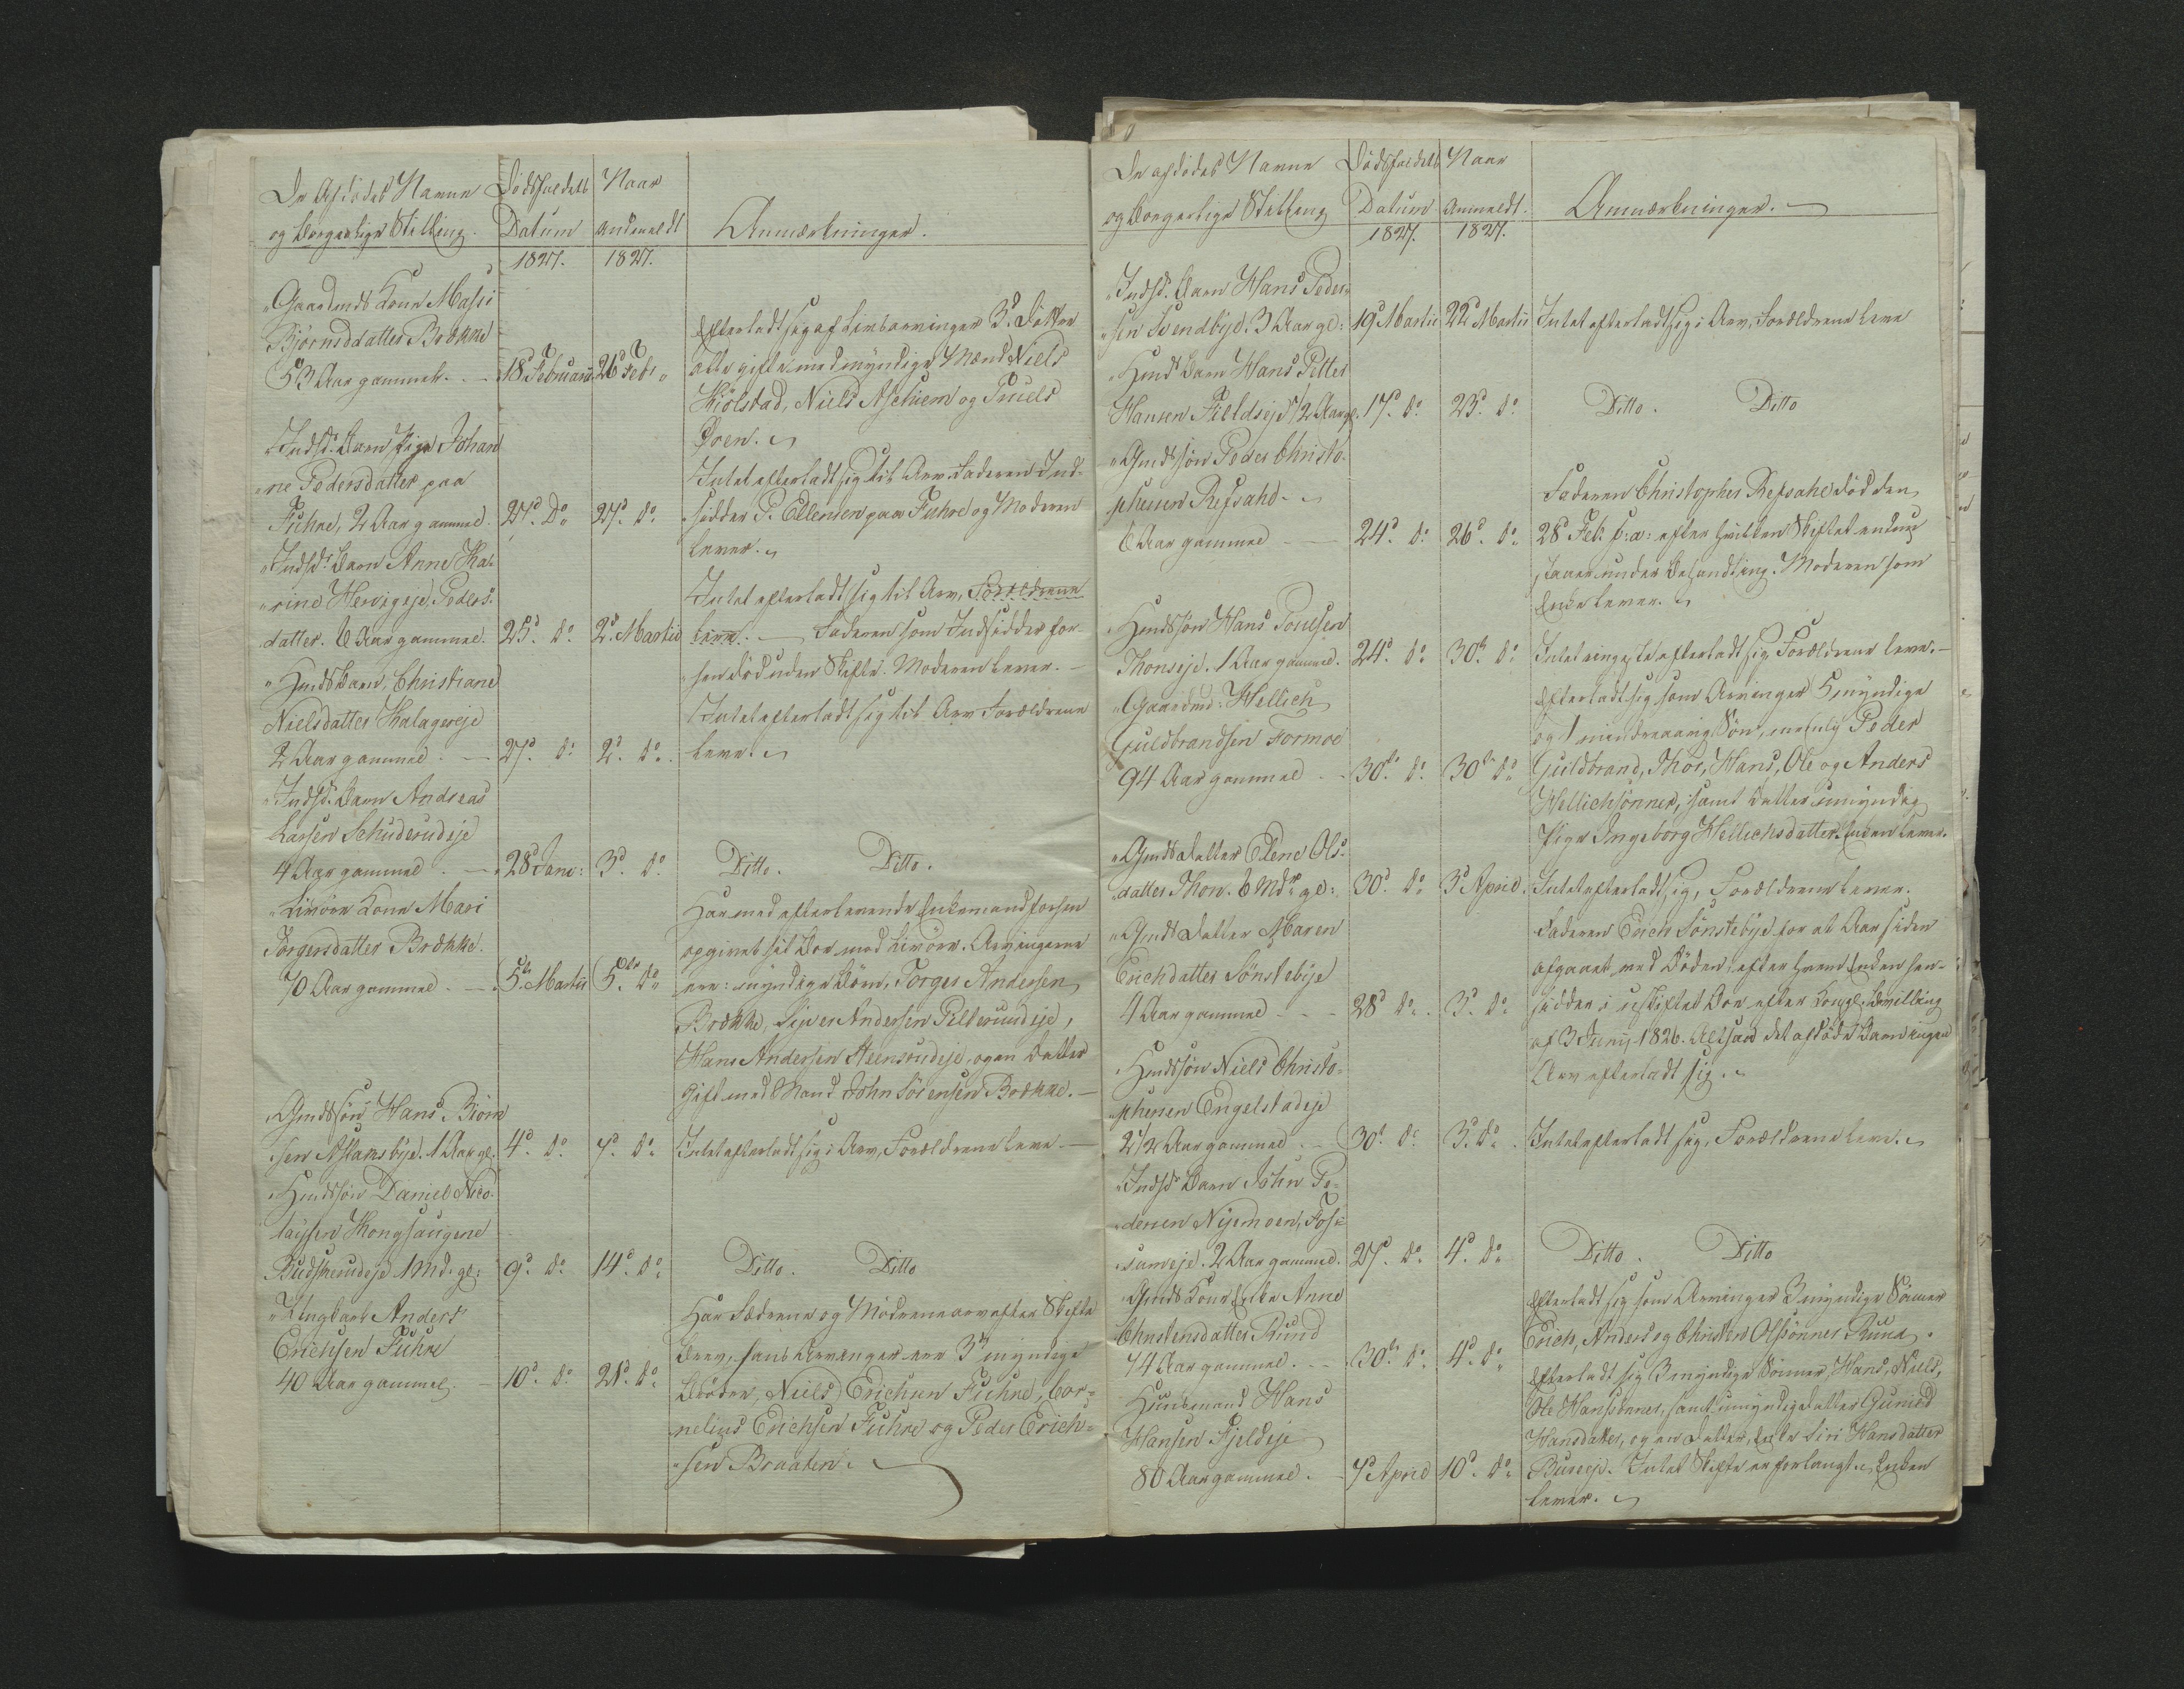 De Afdödes Navne
og borgerlige Stilling.
Dödsfaldets
Datum
1827.
Naar
anmeldt
1827.
Anmærkninger.
Gaardmds Kone Massi
Bjørnsdatter Brække
53 Aar gammel. 18d Februari 26d Feb:
Efterladt sig af Livsarvinger 3d. Døttre
alle gifte med myndige Mænd Niels
Hiölstad, Niels Aschiem og Truels
Øren.
Inds: Barn Pige Johan
ne Pedersdatter paa
Fuhre, 2 Aar gammel. 27d. Do 27d. do
Intet efterladt sig til Arv. Faderen Ind-
sidder P. Ellensen paa Fuhre og Moderen
lever.
Inds: Barn Anne Ka-
rine Hervigeje, Peders-
datter. 6 Aar gammel. 25d. do. 2d. Martii
Intet efterladt sig til Arv, Forældrene
leve. — Faderen som Indsidder for-
hen död uden Skifte. Moderen lever. —
Hmds Barn, Christiane
Nielsdatter Kalagereje
2 Aar gammel. — 27d. do. 2d. do.
Intet efterladt sig til Arv Forældrene
leve.
Inds: Barn Andreas
Larsen Schuderudeje
4 Aar gammel. — 28d Janu: 3d. do.
Ditto. Ditto.
Livöre Kone Mari
Torgersdatter Brække.
70 Aar gammel. — 5te Martii 5te do
Har med efterlevende Enkemand forhen
opgivet sit Boe med Livöre. Arvingerne
ere: myndige Börn, Torger Andersen
Brække, Siver Andersen Pelterudeje,
Hans Andersen Steensrudeje, og en Datter
Gift med Mand John Sörensen Brække. —
Gmds sön Hans Biörn
sen Aslaksbye. 1 Aar gl. 4d. do. 7d. do.
Intet efterladt sig i Arv, Forældrene leve —
Hmds sön Daniel Nico-
laysen Kongsaugene
Rudsherudeje 1 Md. gl: 9d. do. 14d. do.
Ditto. Ditto
Ungkarl Anders
Erichsen Fuhre
40 Aar gammel. — 10d. do. 21d. do.
Har Fædrene og Mödrene arv efter Skifte
brev, hans Arvinger ere 3de myndige
Brödre, Niels Erichsen Fuhre, Cor-
nelius Erichsen Fuhre og Peder Erich-
sen Braaten.
De afdödes Navne
og borgerlige Stilling
Dödsfaldets
Datum
1827.
Naar
Anmeldt.
1827.
Anmærkninger.
Inds: Barn Hans Peder-
sen Svendbye. 3 Aar gl: 19d Martii 22d Martii Intet efterladt sig i Arv, Forældrene leve
Hmds Barn Hans Petter
Hansen Fieldseje 1/2 Aar gl. 17d. do. 23d. do. Ditto. Ditto
Gmds sön Peder Christo-
phersen Refsahl.
6 Aar gammel — 24d. do. 26d. do.
Faderen Christopher Refsahl död den
28d Feb: h: a: efter hvilken Skiftet endnu
staaer under Behandling. Moderen som
Enke lever.
Hmds sön Hans Poulsen
Thonseje. 1 Aar gammel. 24d. do. 30te do. Intet ringeste efterladt sig, Forældrene leve. —
Gaardmd: Hellich
Guldbrandsen Formoe
94 Aar gammel — 30te do. 30te do.
Efterladt sig som Arvinger 5 myndige
og 1 mindreaarig Sön, nemlig Peder
Guldbrand, Thor, Hans, Ole og Anders
Hellichsönner, samt Datter umyndig
Pige Ingeborg Hellichsdatter. Enken lever.
Gmds Datter Elene Ols-
datter Thon. 6 Mdr gl: 30d. do 3d April. Intet efterladt sig, Forældrene lever.
Gmds Datter Maren
Erichdatter Sönstebye
4 Aar gammel — 28d do. 3d. do.
Faderen Erich Sönstebye for et Aar siden
afgaaet ved Döden, efter hvem Enken hen-
sidder i uskiftet Boe efter Kongl. bevilling
af 3 Junij 1826. Altsaa det afdöde Barn ingen
Arv efterladt sig.
Hmds sön Niels Christo-
phersen Engelstadeje
2 1/2 Aar gammel. — 30t. do 3d. do. Intet efterladt sig, Forældrene leve.
Inds: Barn John Pe-
dersen Nyemoen, Fos-
sumeje. 2 Aar gammel. 27d. do. 4d. do. Ditto. Ditto
Gmds Kone Enke Anne
Christensdatter Ruud
74 Aar gammel. — 30te do. 4d. do.
Efterladt sig som Arvinger 3 myndige Sönner
Erich, Anders og Christen Olssönner Ruud.
Huusmand Hans
Hansen Fjeldeje
80 Aar gammel. 7d April 10d. do.
Efterladt sig 3 myndige Sönner, Hans, Niels,
Ole Hanssönner, samt umyndig Datter Gunild
Hansdatter, og en Datter, Enke Siri Hansdatter
Bureeje. Intet Skifte er forlangt. Enken
lever.